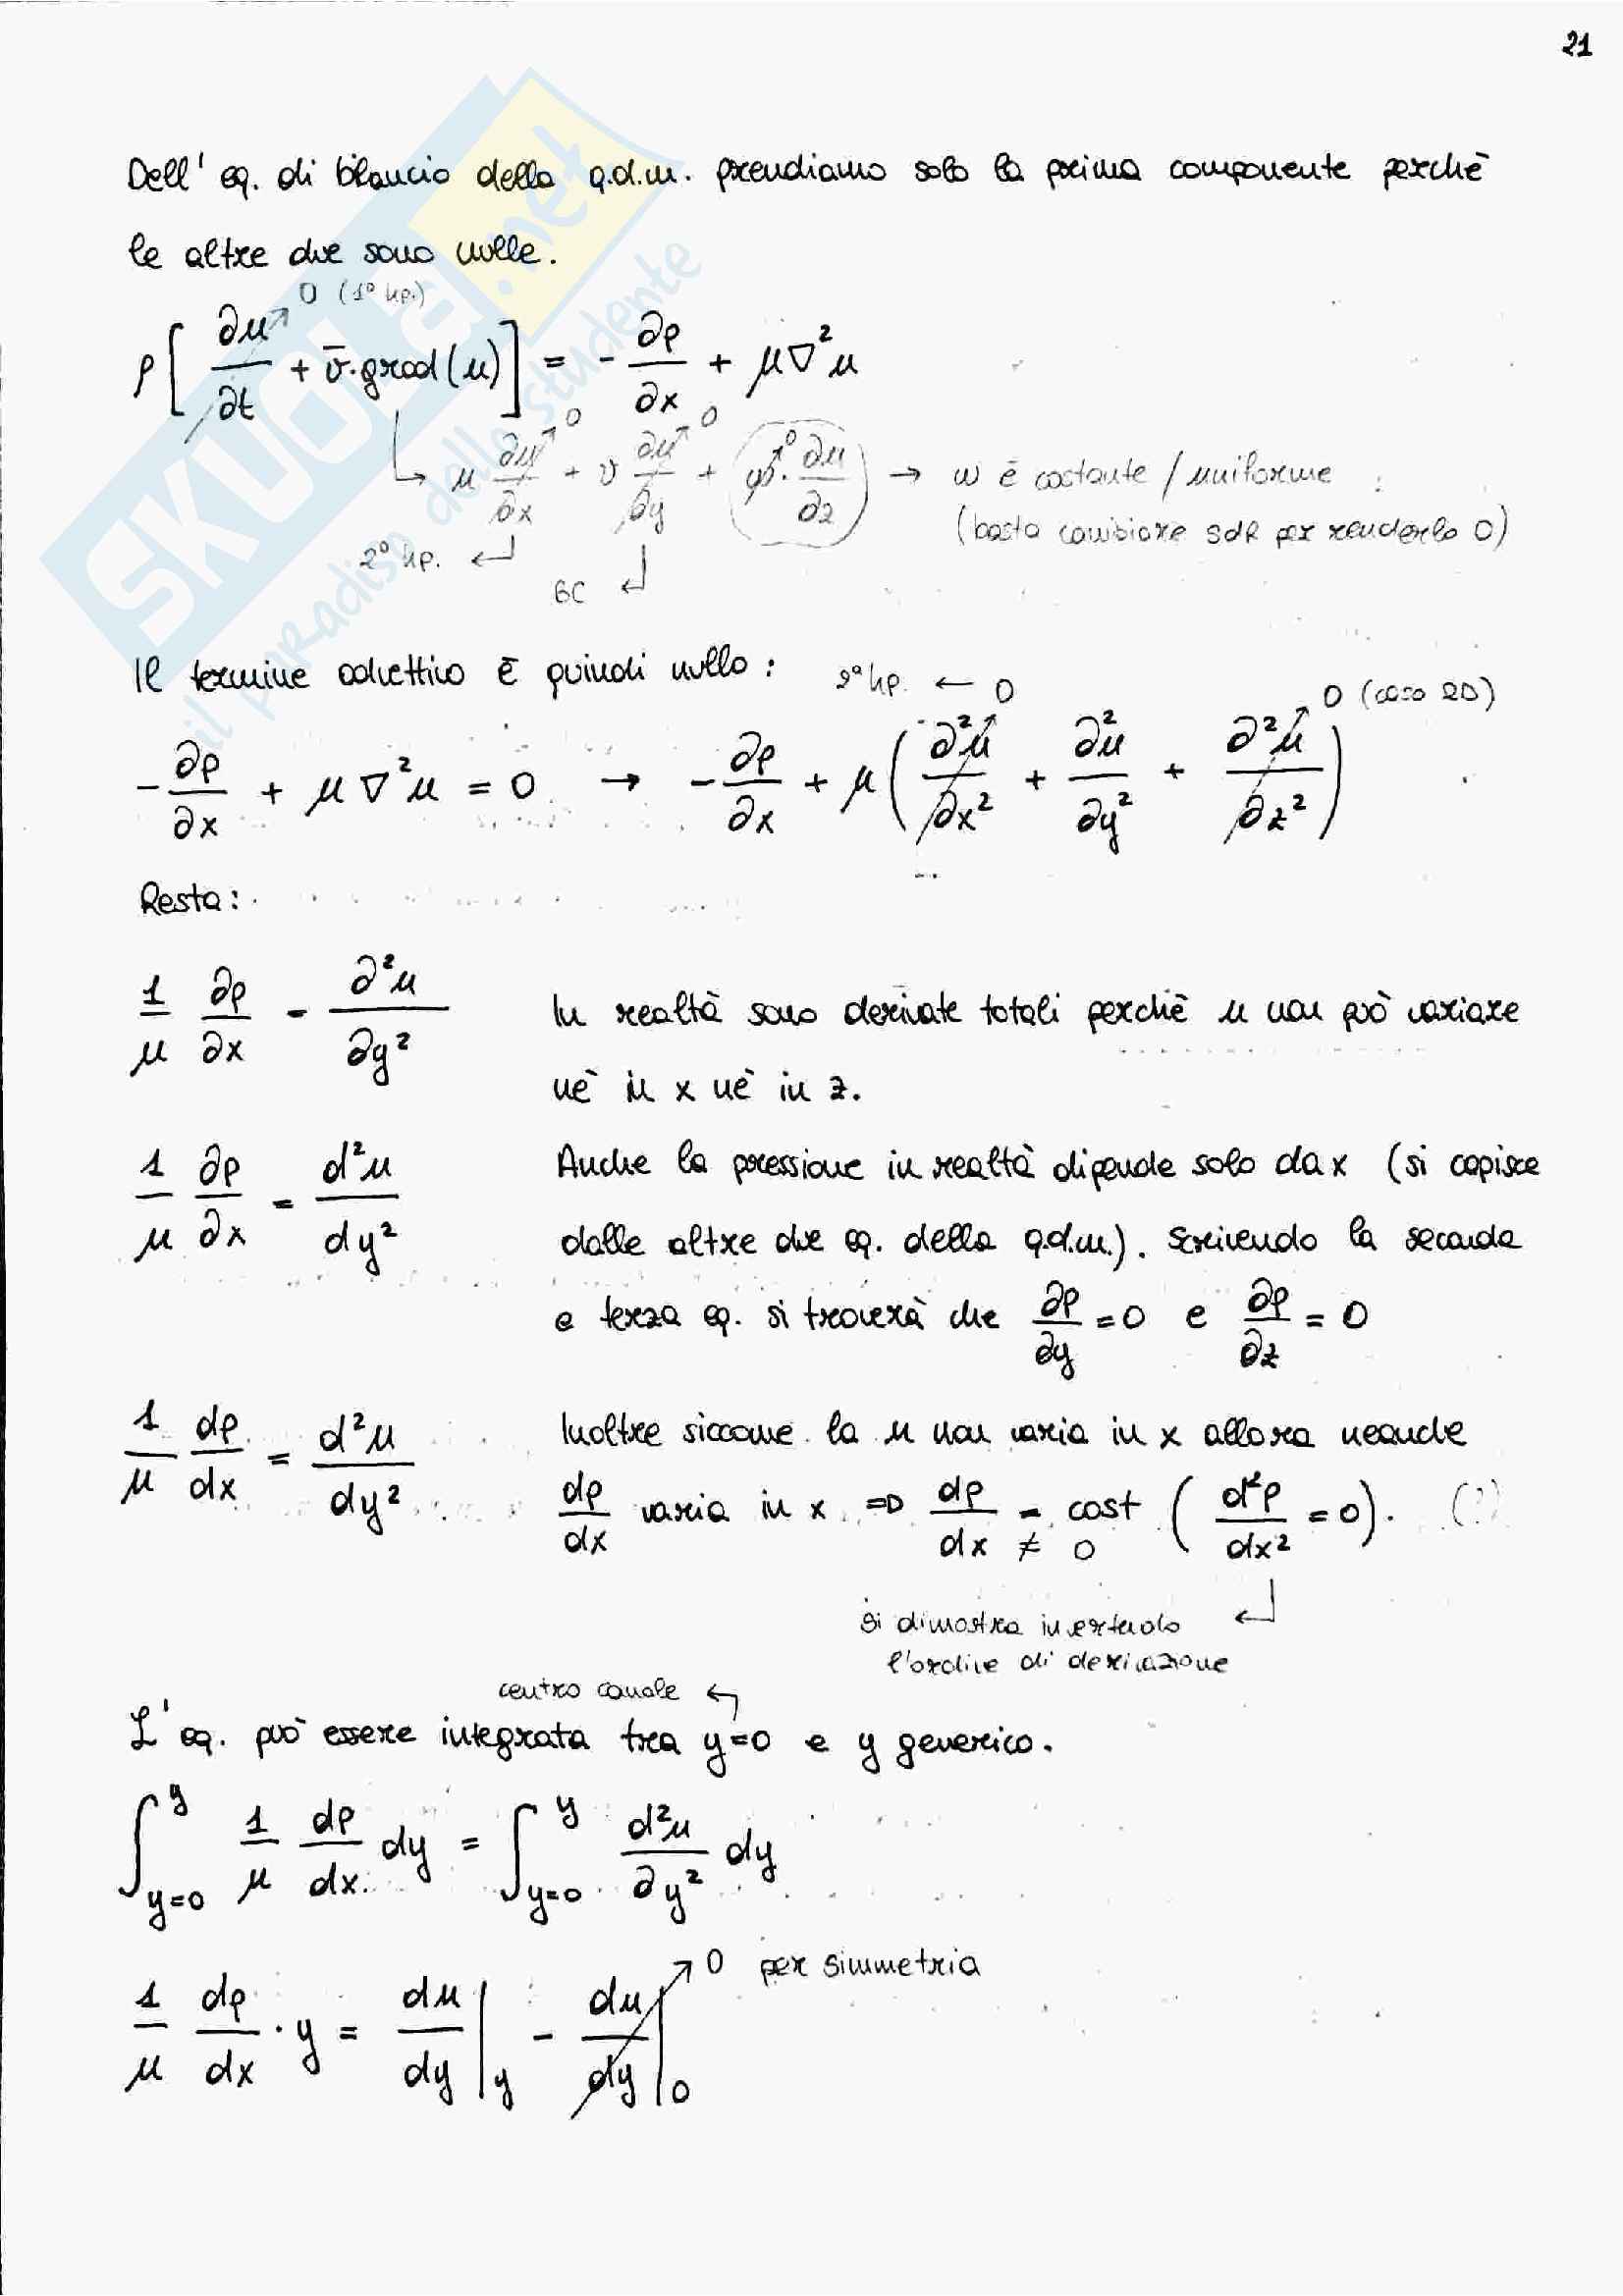 21
Dell' eq. di bilancio della q.d.m. prendiamo solo la prima componente perchè
le altre due sono nulle.
0 (1° hp.)
ρ[∂u/∂t + v̄·grad(u)] = - ∂p/∂x + μ∇²u
u ∂u/∂x + v ∂u/∂y + w·∂u/∂z → w è costante / uniforme
0 0 0
(basta cambiare SdR per renderlo 0)
2° hp. ↵
BC ↵
Il termine advettivo è quindi nullo: 2ª hp. ← 0 0 (caso 2D)
-∂p/∂x + μ∇²u = 0 → -∂p/∂x + μ(∂²u/∂x² + ∂²u/∂y² + ∂²u/∂z²)
Resta:
1/μ ∂p/∂x = ∂²u/∂y² In realtà sono derivate totali perchè u non può variare
nè in x nè in z.
1/μ ∂p/∂x = d²u/dy² Anche la pressione in realtà dipende solo da x (si capisce
dalle altre due eq. della q.d.m.). Scrivendo la seconda
e terza eq. si troverà che ∂p/∂y = 0 e ∂p/∂z = 0
1/μ dp/dx = d²u/dy² Inoltre siccome la u non varia in x allora neanche
dp/dx varia in x ⇒ dp/dx = cost ≠ 0 (d²p/dx² = 0). (?)
si dimostra invertendo ↵
l'ordine di derivazione
centro canale ↰
L'eq. può essere integrata tra y=0 e y generico.
∫_{y=0}^{y} 1/μ dp/dx dy = ∫_{y=0}^{y} d²u/∂y² dy
0 per simmetria
1/μ dp/dx · y = du/dy|y - du/dy|0
SKUOLA.net
il paradiso dello studente